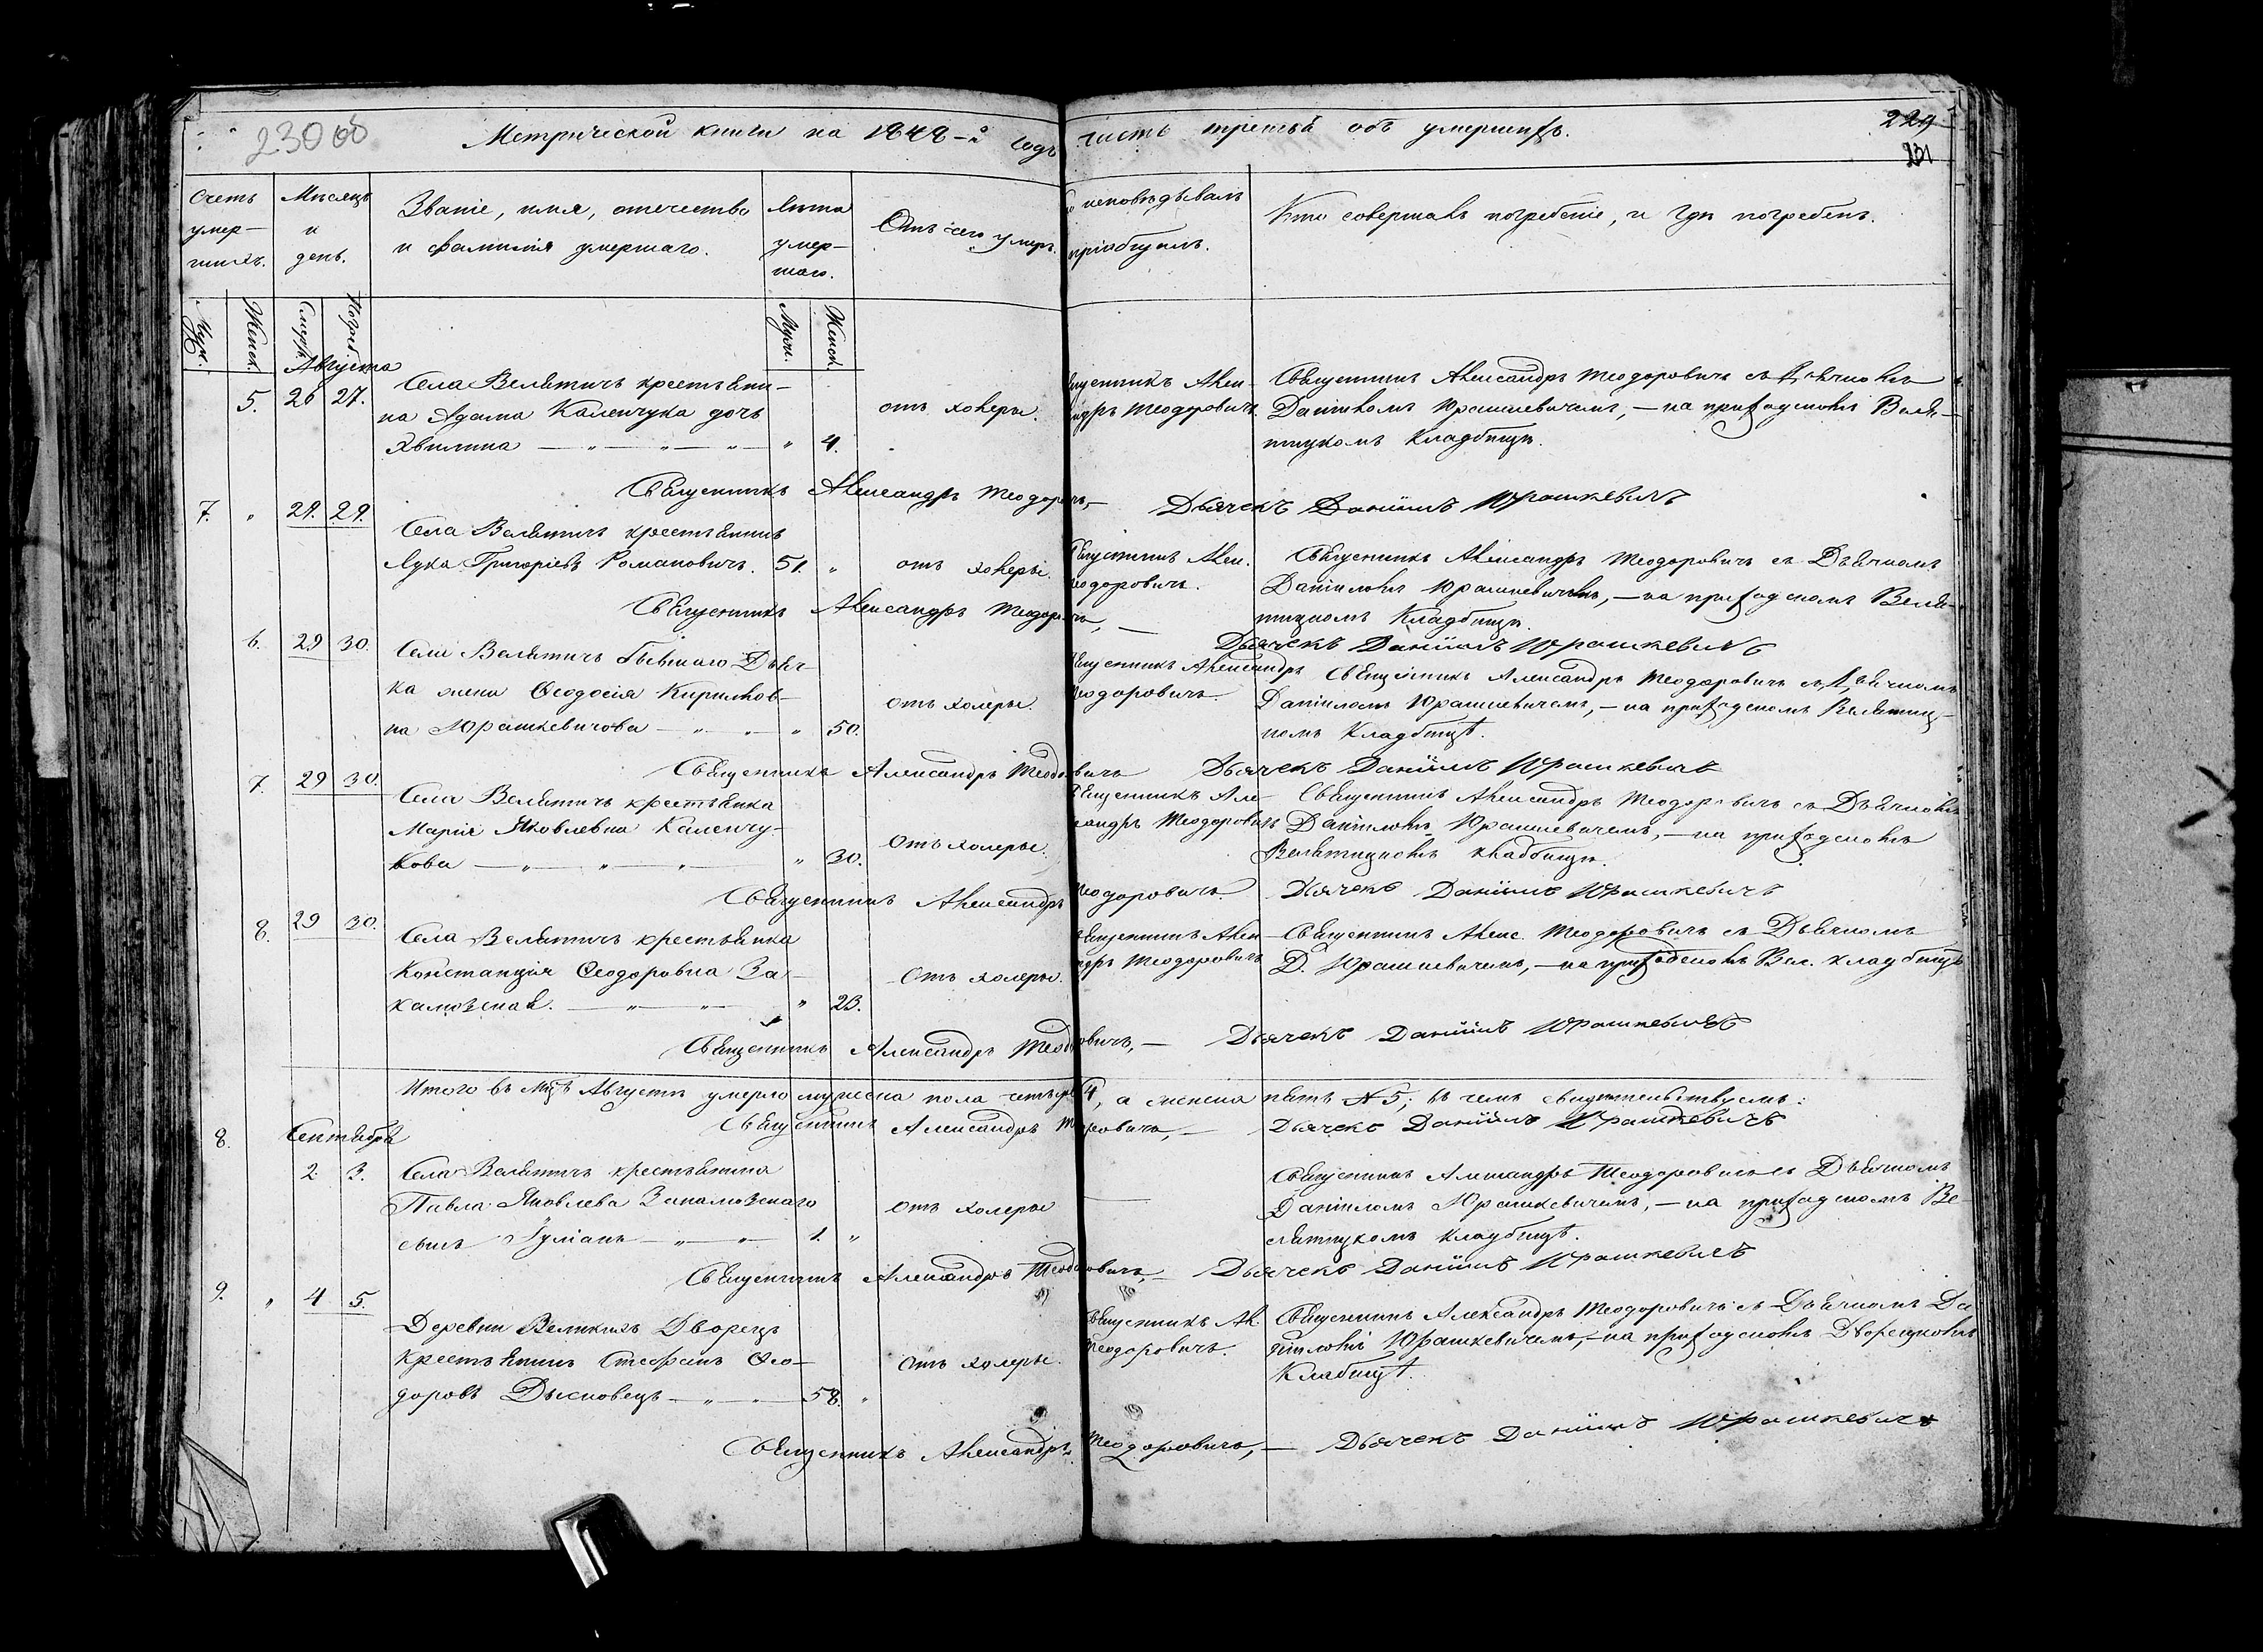 230 об
Метрической книги на 1848-й годъ часть третья объ умершихъ.
229
231
Счетъ умер-шихъ. Мѣсяцъ и день. Званіе, имя, отечество и фамилія умершаго. Лѣта умер-шаго. Отъ чего умеръ. исповѣдывалъ пріобщалъ. Кто совершалъ погребеніе, и гдѣ погребенъ.
Муж. Женск. Смерт. Погреб. Муж. Женск.
Августа
5. 26 27. Села Велятичъ крестьяни-
на Адама Каленчука дочь
Явилина — „ — „ — „ — „ 4.
отъ холеры.
Священникъ Алек-
сандръ Теодоровичъ
Священникъ Александръ Теодоровичъ съ Дьячкомъ
Даніиломъ Юрашкевичемъ, — на приходскомъ Веля-
тицкомъ Кладбищѣ.
Священникъ Александръ Теодоровичъ, — Дьячекъ Даніилъ Юрашкевичъ
7. „ 29. 29.
Села Велятичъ крестьянинъ
Лука Григоріевъ Романовичъ. 51. „ отъ холеры.
Священникъ Алек.
Теодоровичъ.
Священникъ Александръ Теодоровичъ съ Дьячкомъ
Даніиломъ Юрашкевичемъ, — на приходскомъ Веля-
тицкомъ Кладбищѣ.
Священникъ Александръ Теодоровичъ, — Дьячекъ Даніилъ Юрашкевичъ
6. 29 30. Села Велятичъ бывшаго Дьяч-
ка жена Ѳеодосія Кирилов-
на Юрашкевичова — „ — „ — „ 50.
отъ холеры.
Священникъ Александръ
Теодоровичъ.
Священникъ Александръ Теодоровичъ съ Дьячкомъ
Даніиломъ Юрашкевичемъ, — на приходскомъ Велятиц-
комъ Кладбищѣ.
Священникъ Александръ Теодоровичъ Дьячекъ Даніилъ Юрашкевичъ
7. 29 30.
Села Велятичъ крестьянка
Марія Яковлевна Каленчу-
кова — „ „ „ „ 30.
отъ холеры.
Священникъ Але-
ксандръ Теодоровичъ
Священникъ Александръ Теодоровичъ съ Дьячкомъ
Даніиломъ Юрашкевичемъ, — на приходскомъ
Велятицкомъ кладбищѣ.
Священникъ Александръ Теодоровичъ. Дьячекъ Даніилъ Юрашкевичъ
8. 29 30.
Села Велятичъ крестьянка
Констанція Ѳеодоровна За-
камовская. — „ — „ — „ 23.
отъ холеры.
Священникъ Алек-
сандръ Теодоровичъ
Священникъ Алекс. Теодоровичъ съ Дьячкомъ
Д. Юрашкевичемъ, — на приходскомъ Вел. кладбищѣ
Священникъ Александръ Теодоровичъ, — Дьячекъ Даніилъ Юрашкевичъ
Итого въ мцѣ Августѣ умерло мужеска пола четыре 4, а женска пять № 5; въ чемъ свидѣтельствуемъ:
Священникъ Александръ Теодоровичъ, — Дьячекъ Даніилъ Юрашкевичъ
8. Сентября
2. 3. Села Велятичъ крестьянина
Павла Яковлева Закамовскаго
сынъ Іуліанъ — „ — „ — 1. „
отъ холеры
—
Священникъ Александръ Теодоровичъ съ Дьячкомъ
Даніиломъ Юрашкевичемъ, — на приходскомъ Ве-
лятицкомъ кладбищѣ.
Священникъ Александръ Теодоровичъ, — Дьячекъ Даніилъ Юрашкевичъ
9. „ 4 5.
Деревни Великихъ Дворецъ
крестьянинъ Стефанъ Ѳео-
доровъ Дысковецъ — „ — „ — 58. „
отъ холеры.
Священникъ Ал.
Теодоровичъ.
Священникъ Александръ Теодоровичъ съ Дьячкомъ Да-
ніиломъ Юрашкевичемъ, — на приходскомъ Дворецкомъ
Кладбищѣ.
Священникъ Александръ Теодоровичъ, — Дьячекъ Даніилъ Юрашкевичъ